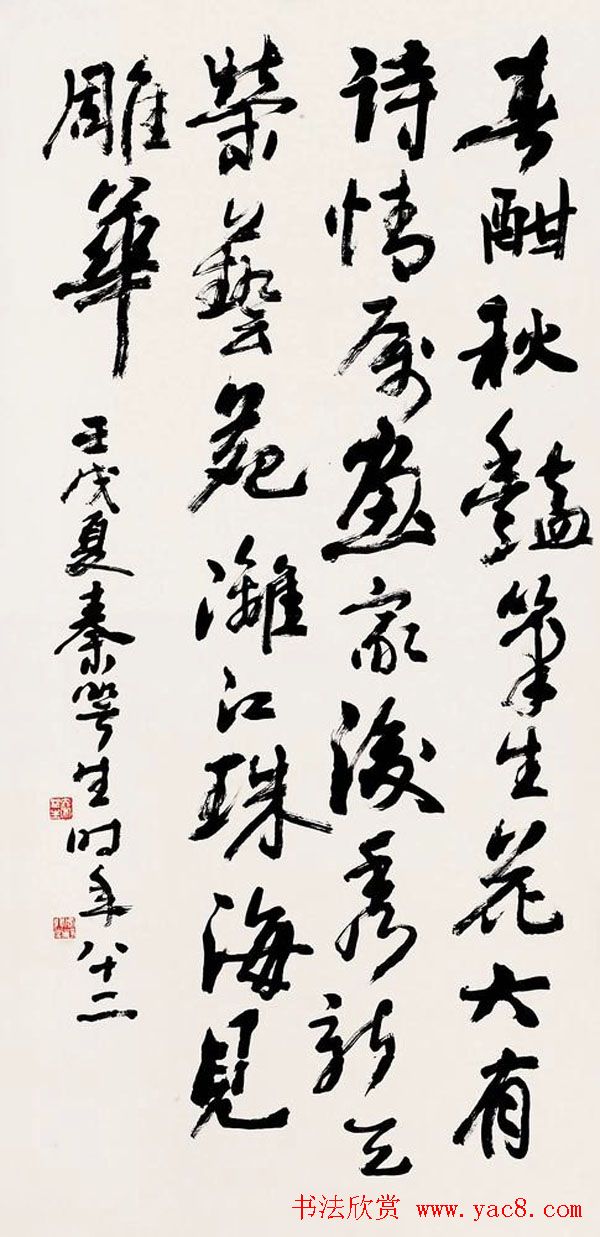 春酣秋豔筆生花大有
诗情属畫家後秀新
榮藝苑灕江珠海見
雕華
壬戌夏秦咢生时年八十二
书法欣赏 www.yac8.com